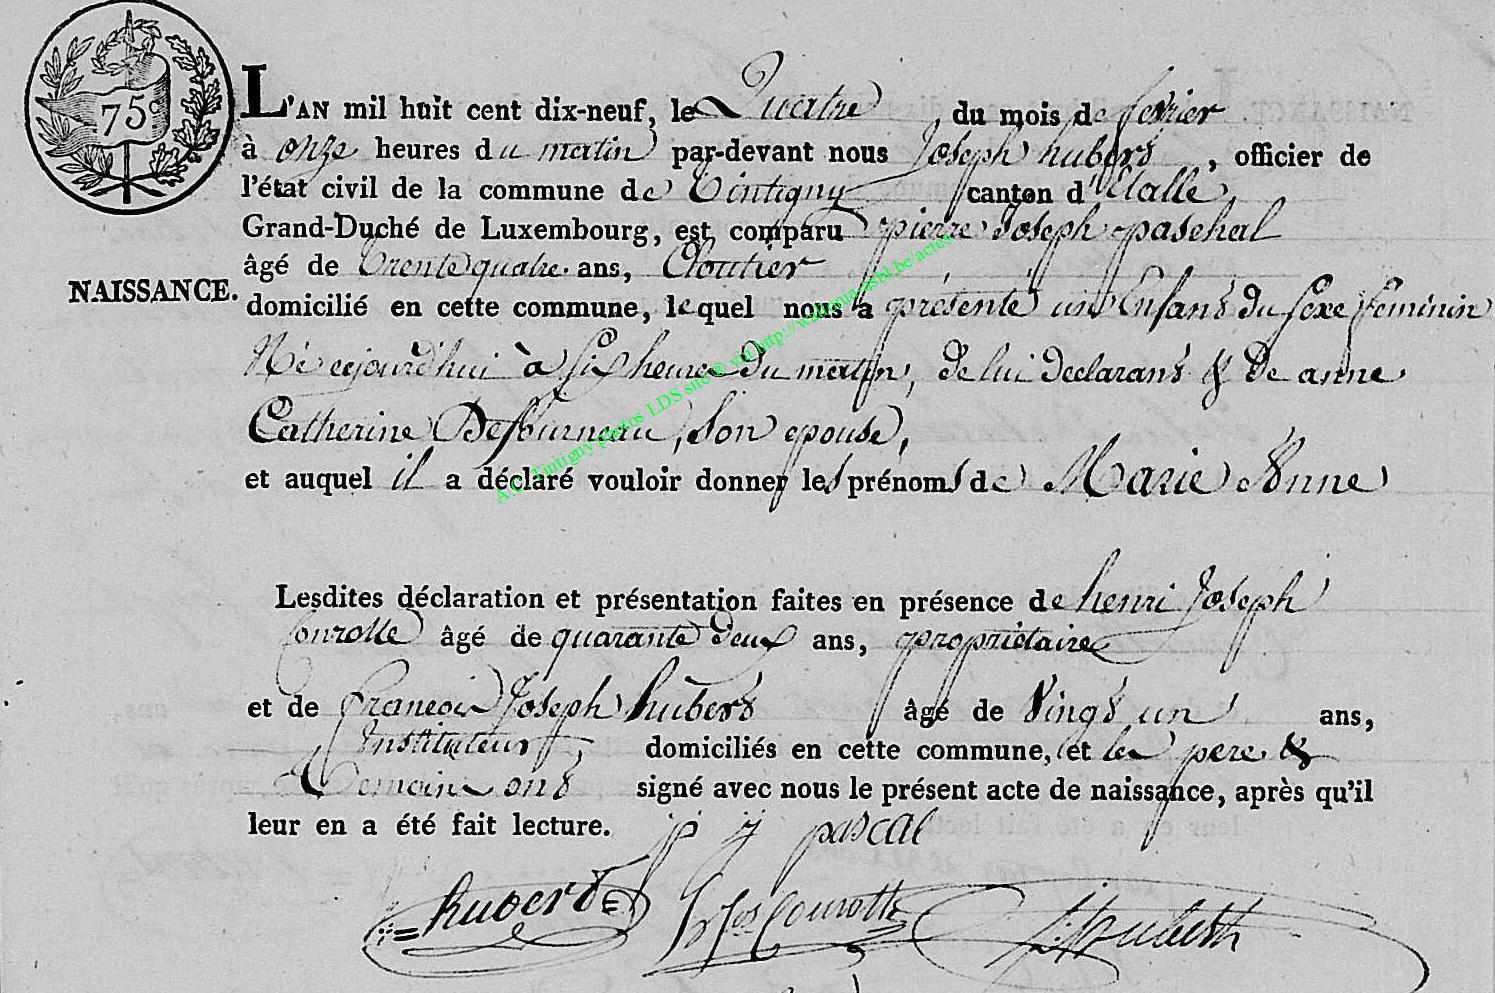 75c
L'AN mil huit cent dix-neuf, le Quatre du mois de fevrier
à onze heures du matin par-devant nous Joseph hubert, officier de
l'état civil de la commune de Tintigny canton d'Etalle,
Grand-Duché de Luxembourg, est comparu pierre Joseph paschal
âgé de trente quatre ans, Cloutier
NAISSANCE.
domicilié en cette commune, lequel nous a présenté un Enfant du sexe feminin
Né cejourd'hui à six heures du matin, de lui declarant & de anne
Catherine Defourneau, son epouse,
et auquel il a déclaré vouloir donner les prénoms de Marie Anne
Lesdites déclaration et présentation faites en présence de henri Joseph
Conrotte âgé de quarante deux ans, propriétaire
et de francois Joseph hubert âgé de vingt un ans,
Instituteur, domiciliés en cette commune, et les pere &
temoins ont signé avec nous le présent acte de naissance, après qu'il
leur en a été fait lecture. p j pascal
hubert hJos Conrotte J. hubert
A.C. Tintigny photos LDS site © via http://wallonia-asbl.be/actes